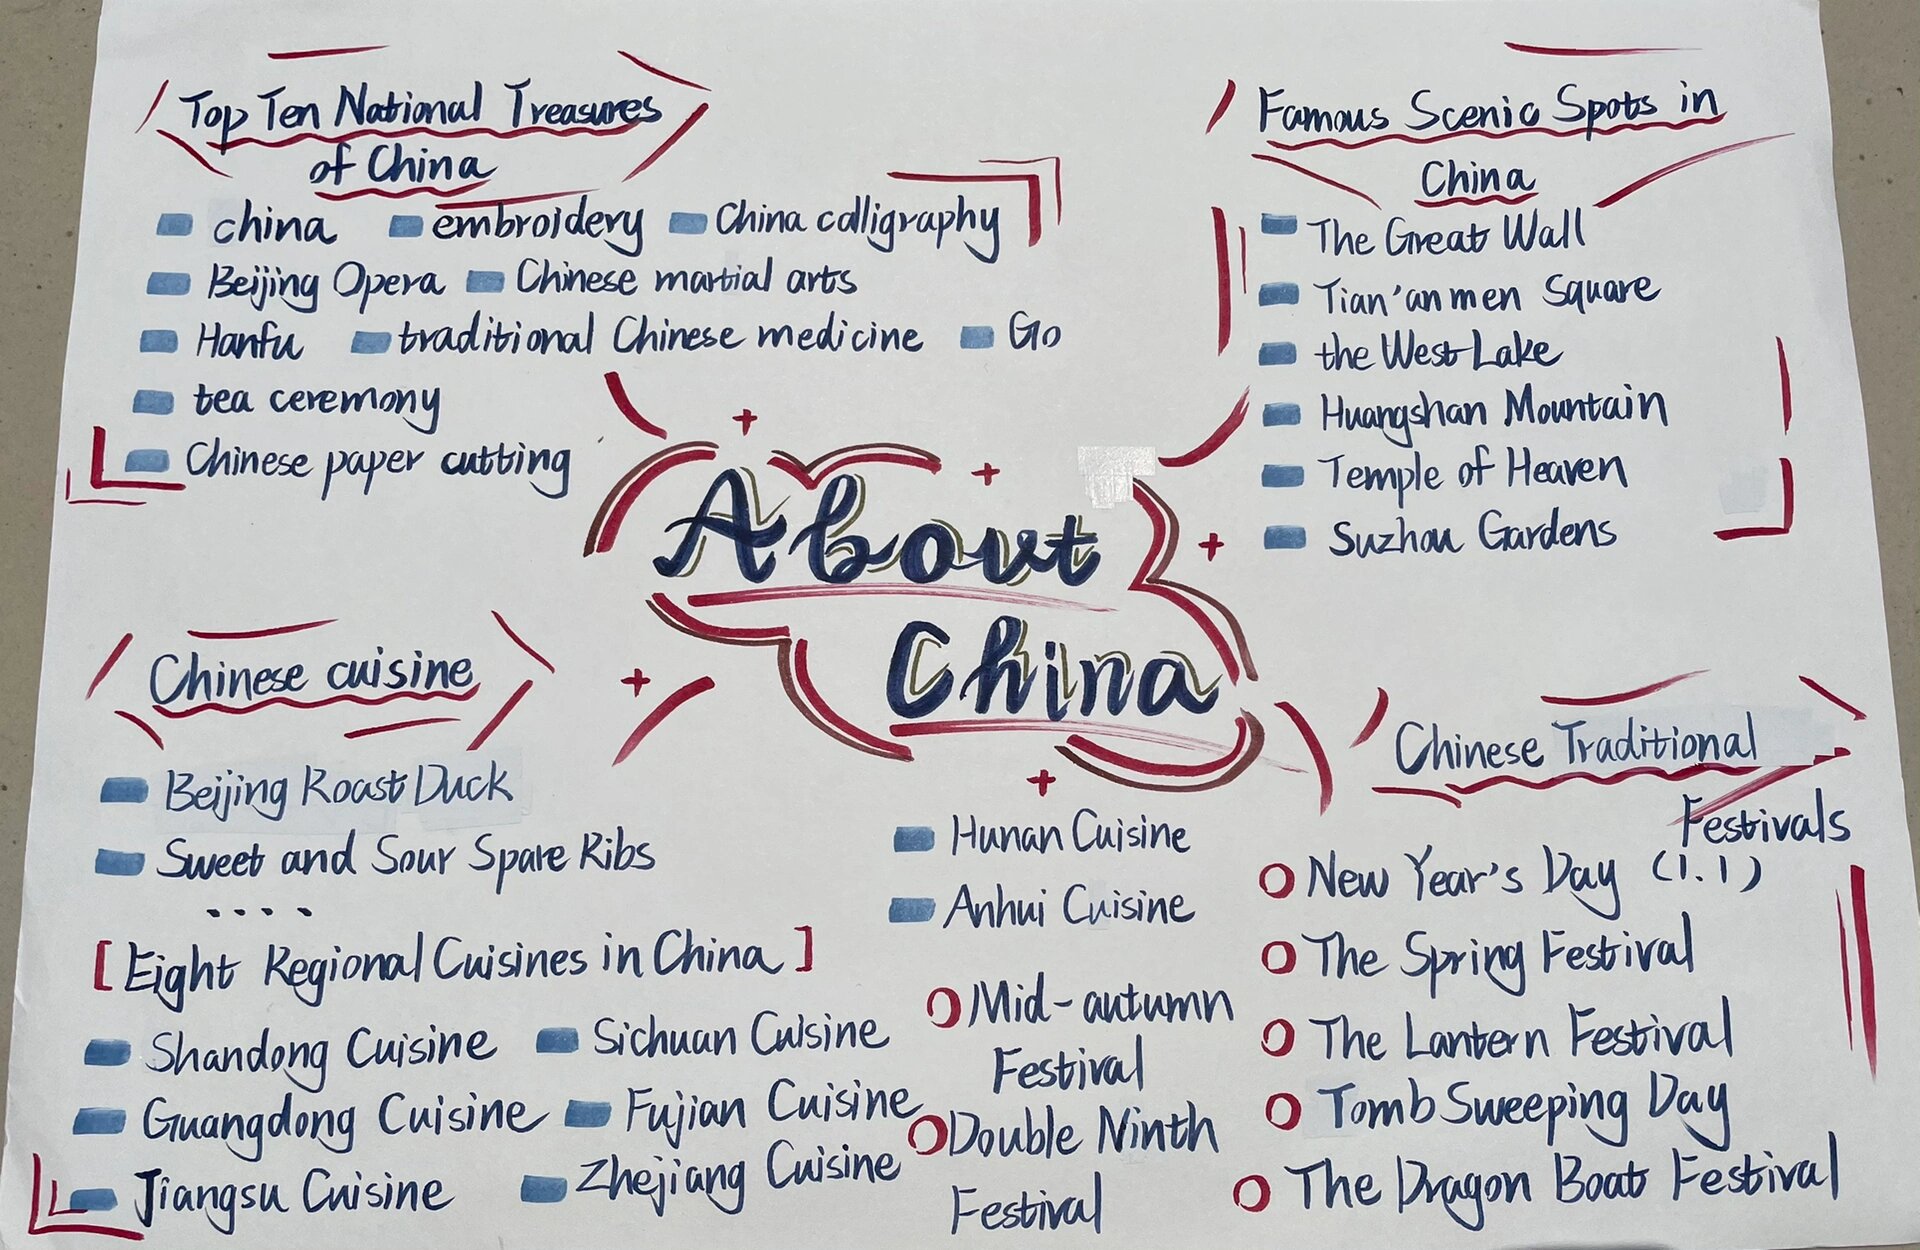 Top Ten National Treasures
of China
china embroidery China calligraphy
Beijing Opera Chinese martial arts
Hanfu traditional Chinese medicine Go
tea ceremony
Chinese paper cutting
Famous Scenic Spots in
China
The Great Wall
Tian'anmen Square
the West Lake
Huangshan Mountain
Temple of Heaven
Suzhou Gardens
About
China
Chinese cuisine
Beijing Roast Duck
Sweet and Sour Spare Ribs
....
[Eight Regional Cuisines in China]
Shandong Cuisine Sichuan Cuisine
Guangdong Cuisine Fujian Cuisine
Jiangsu Cuisine Zhejiang Cuisine
Hunan Cuisine
Anhui Cuisine
Chinese Traditional
Festivals
New Year's Day (1.1)
The Spring Festival
The Lantern Festival
Tomb Sweeping Day
The Dragon Boat Festival
Mid-autumn
Festival
Double Ninth
Festival